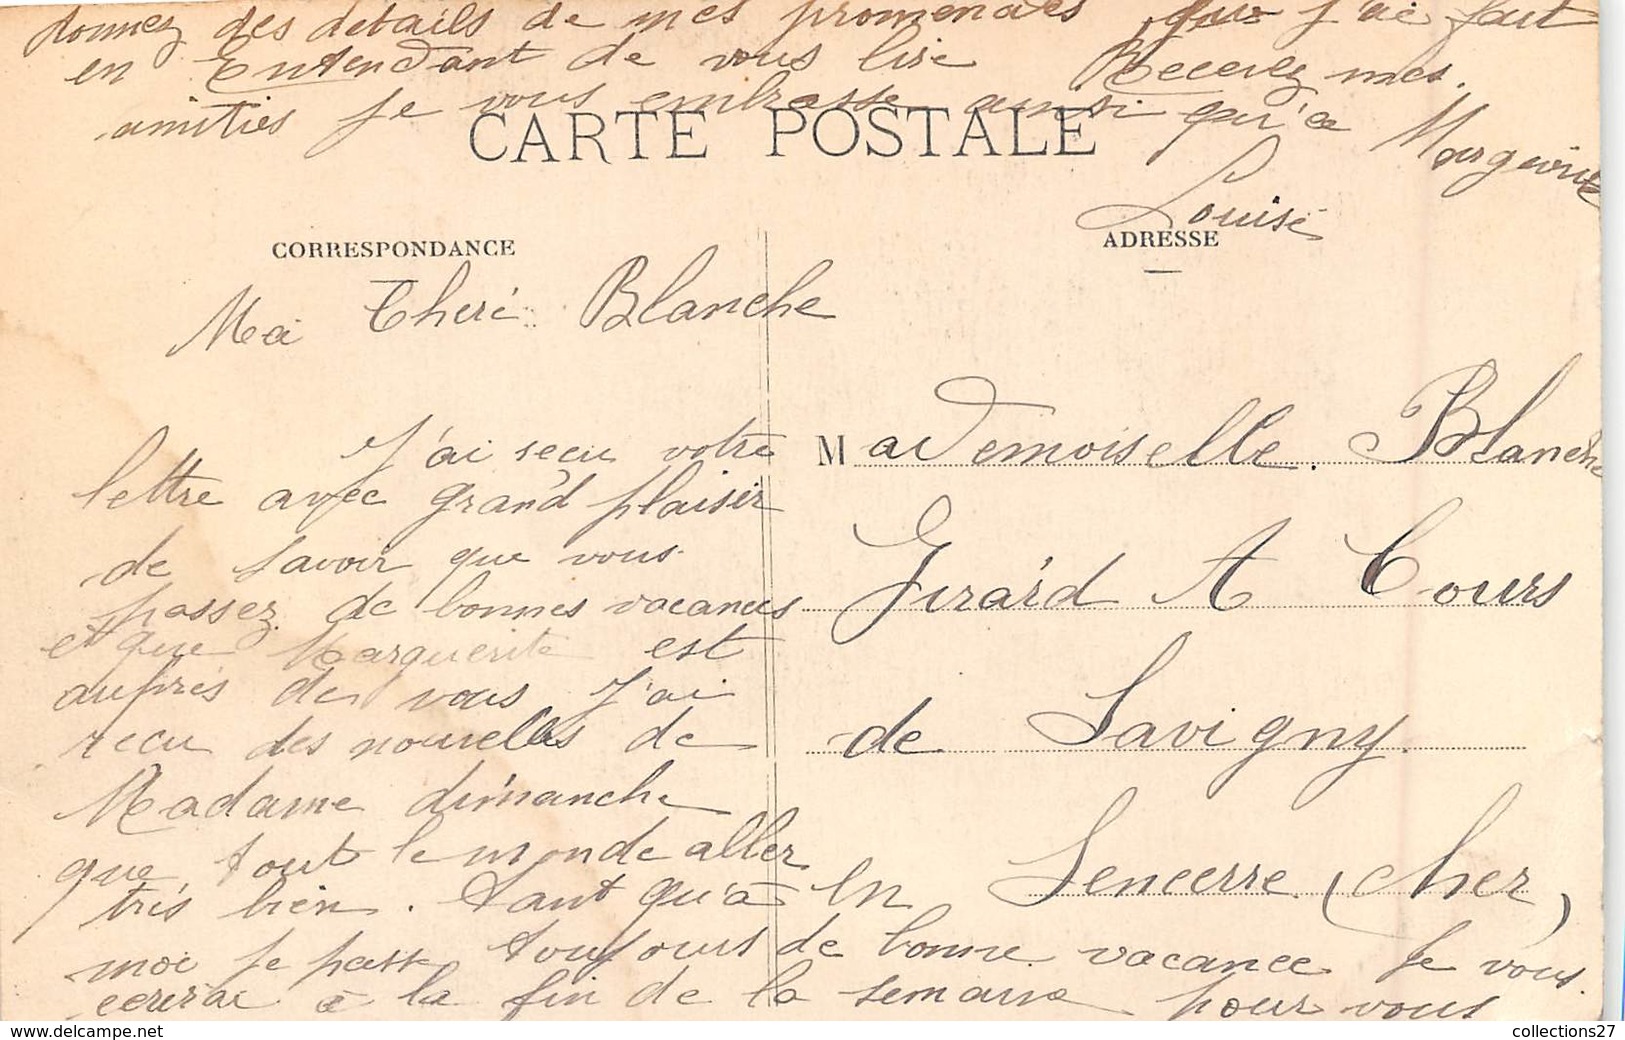 donnez des details de mes promenades que j'ai fait
en Entendant de vous lire Recevez mes
amitiés je vous embrasse ainsi qu'a Margueritte
CARTE POSTALE
Louise
CORRESPONDANCE
ADRESSE
Ma Cheré Blanche
J'ai recu votre
lettre avec grand plaisir
de savoir que vous
passez de bonnes vacances
et que Marguerite est
auprés de vous J'ai
recu des nouvelles de
Madame dimanche
que tout le monde aller
trés bien. tant qu'a
moi je passe toujours de bonne vacance Je vous
ecrirai a la fin de la semaine pour vous
Mademoiselle. Blanche
Girard A Cours
de Savigny
En Sencerre (Cher)
collections27